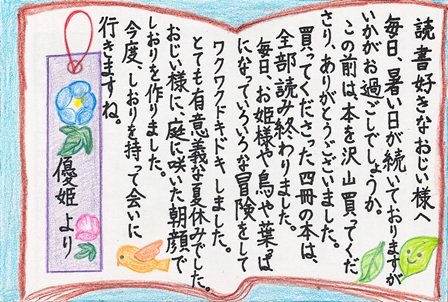 読書好きなおじい様へ
毎日、暑い日が続いておりますが
いかがお過ごしでしょうか。
この前は、本を沢山買ってくだ
さり、ありがとうございました。
買ってくださった四冊の本は、
全部読み終わりました。
毎日、お姫様や鳥や葉っぱ
になっていろいろな冒険をして
ワクワクドキドキしました。
とても有意義な夏休みでした。
おじい様に、庭に咲いた朝顔で
しおりを作りました。
今度、しおりを持って会いに
行きますね。
優姫より